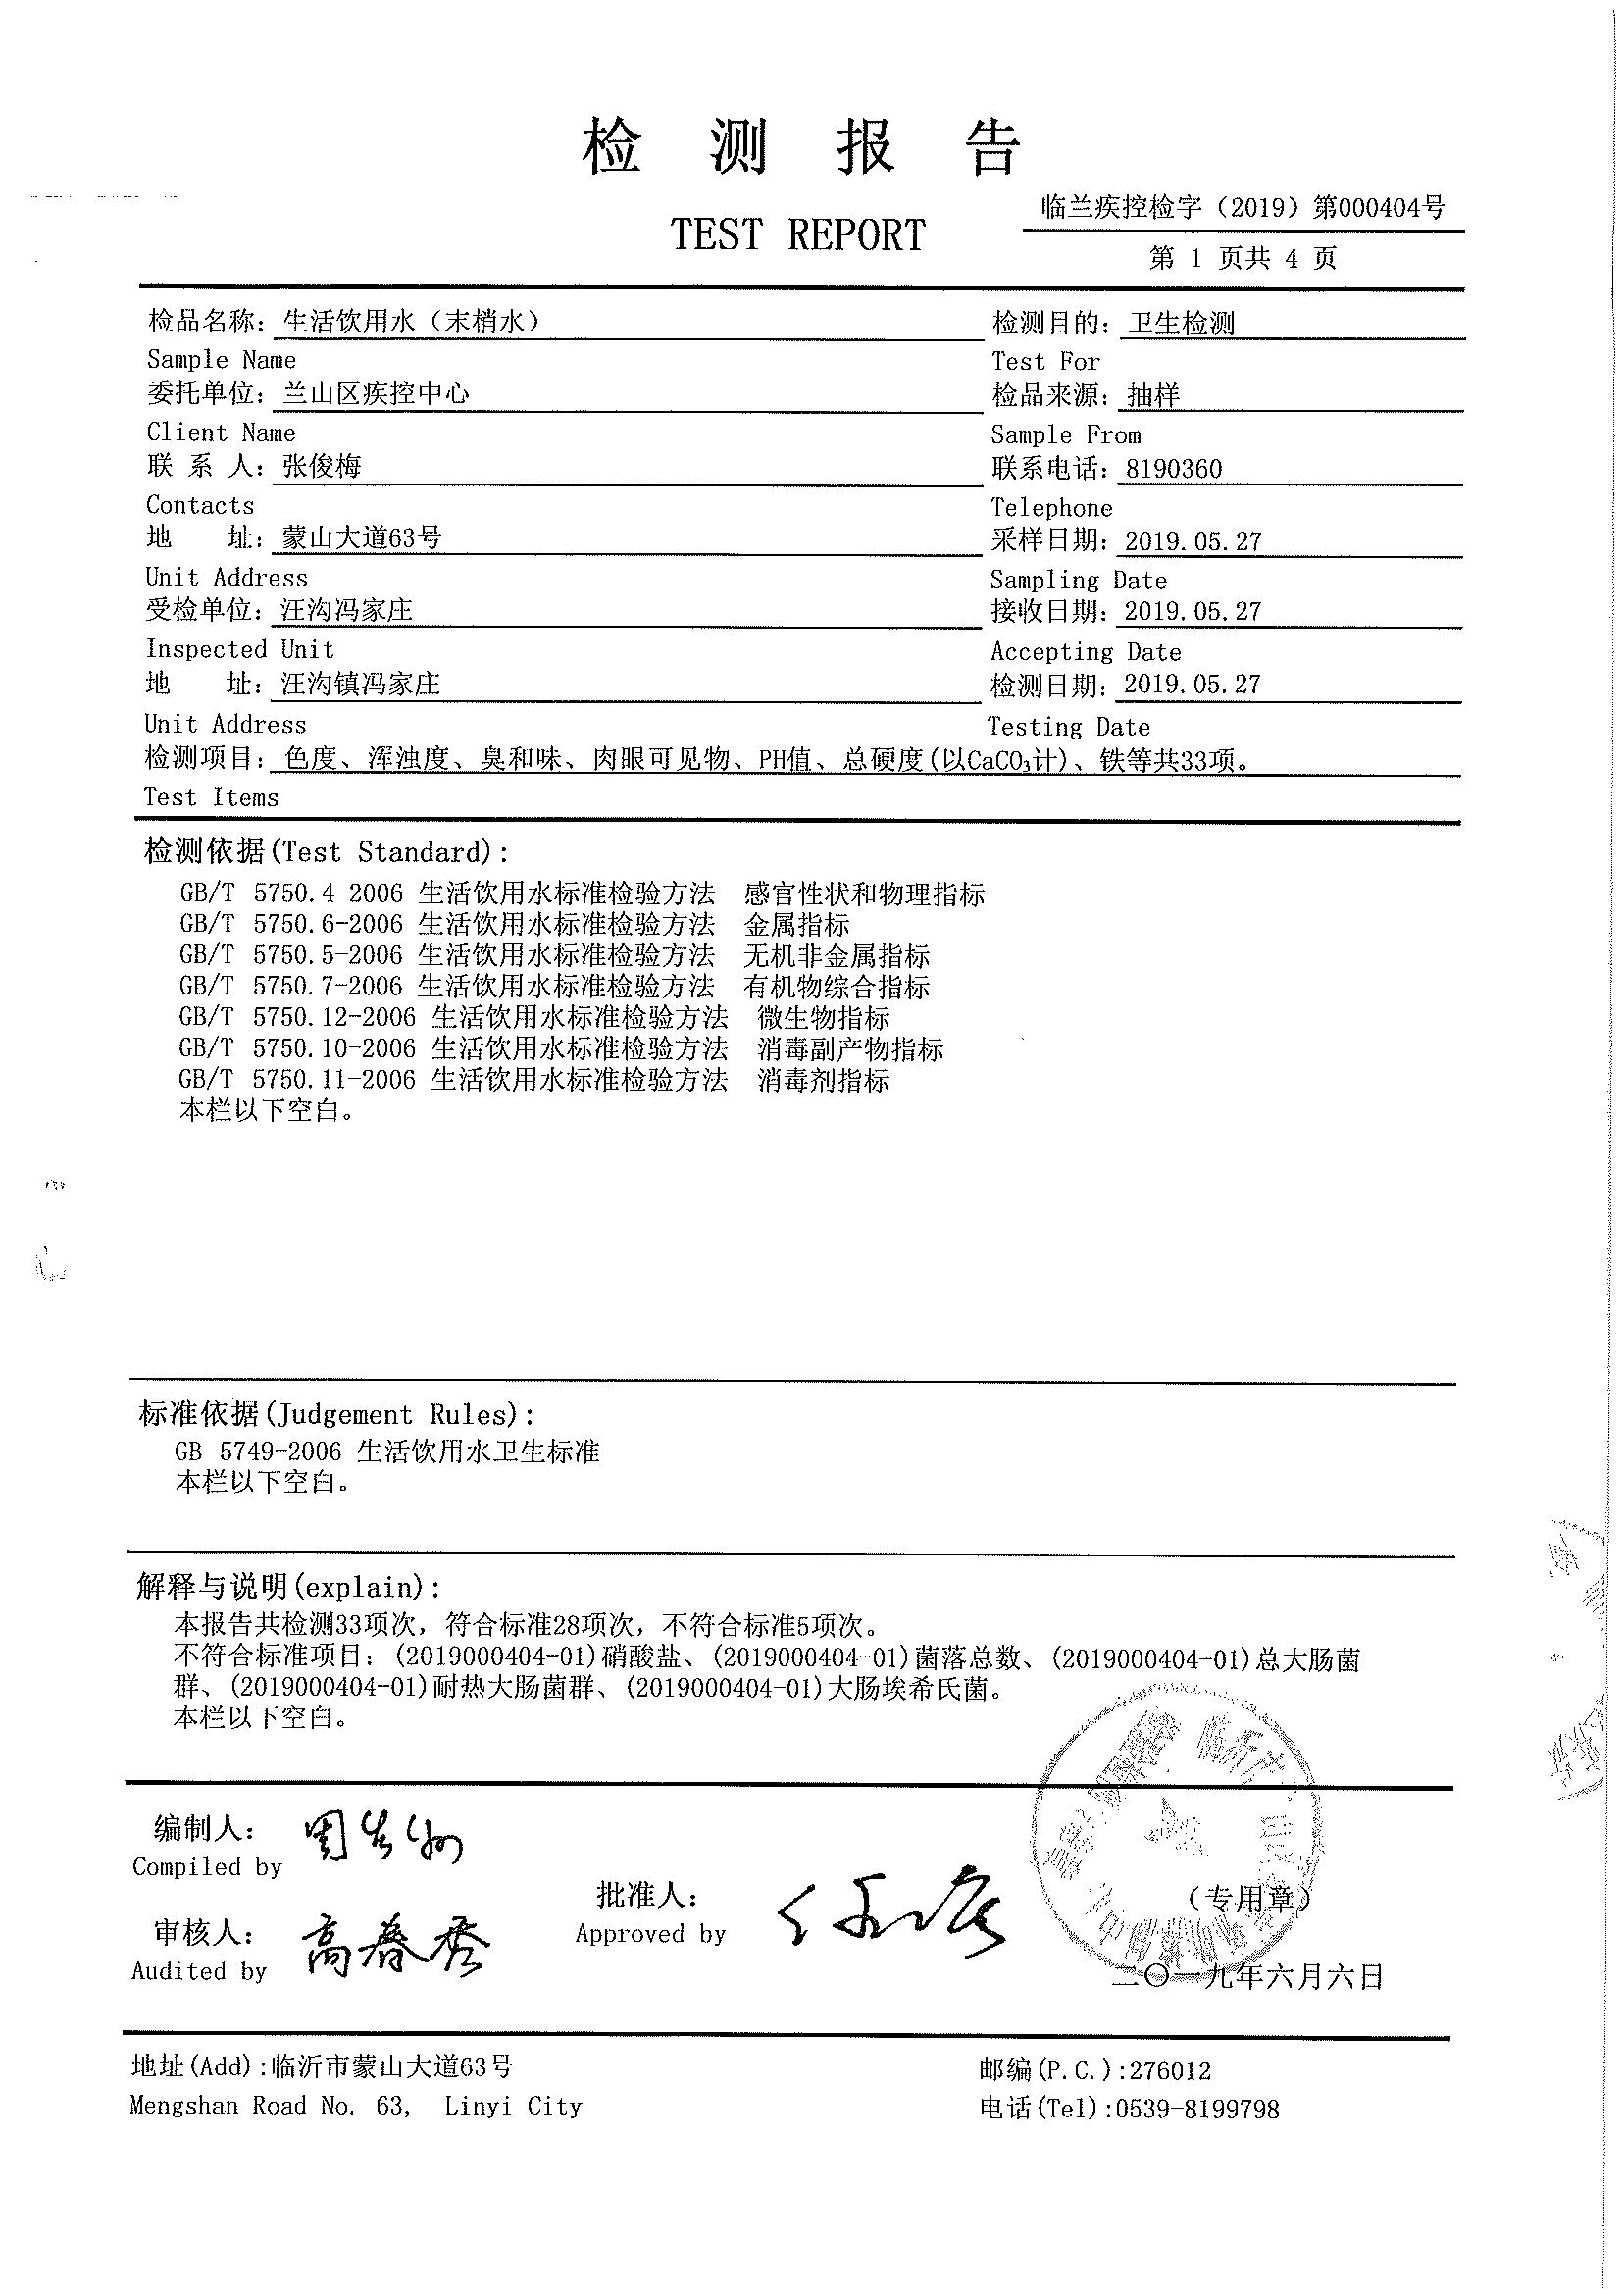 检测报告
临兰疾控检字（2019）第000404号
TEST REPORT
第 1 页共 4 页
检品名称：生活饮用水（末梢水） 检测目的：卫生检测
Sample Name Test For
委托单位：兰山区疾控中心 检品来源：抽样
Client Name Sample From
联 系 人：张俊梅 联系电话：8190360
Contacts Telephone
地 址：蒙山大道63号 采样日期：2019.05.27
Unit Address Sampling Date
受检单位：汪沟冯家庄 接收日期：2019.05.27
Inspected Unit Accepting Date
地 址：汪沟镇冯家庄 检测日期：2019.05.27
Unit Address Testing Date
检测项目：色度、浑浊度、臭和味、肉眼可见物、PH值、总硬度(以CaCO₃计)、铁等共33项。
Test Items
检测依据(Test Standard):
GB/T 5750.4-2006 生活饮用水标准检验方法 感官性状和物理指标
GB/T 5750.6-2006 生活饮用水标准检验方法 金属指标
GB/T 5750.5-2006 生活饮用水标准检验方法 无机非金属指标
GB/T 5750.7-2006 生活饮用水标准检验方法 有机物综合指标
GB/T 5750.12-2006 生活饮用水标准检验方法 微生物指标
GB/T 5750.10-2006 生活饮用水标准检验方法 消毒副产物指标
GB/T 5750.11-2006 生活饮用水标准检验方法 消毒剂指标
本栏以下空白。
标准依据(Judgement Rules):
GB 5749-2006 生活饮用水卫生标准
本栏以下空白。
解释与说明(explain):
本报告共检测33项次，符合标准28项次，不符合标准5项次。
不符合标准项目：(2019000404-01)硝酸盐、(2019000404-01)菌落总数、(2019000404-01)总大肠菌
群、(2019000404-01)耐热大肠菌群、(2019000404-01)大肠埃希氏菌。
本栏以下空白。
编制人：
Compiled by
批准人：
（专用章）
Approved by
审核人：高春秀
Audited by
二〇一九年六月六日
地址(Add):临沂市蒙山大道63号 邮编(P.C.):276012
Mengshan Road No. 63, Linyi City 电话(Tel):0539-8199798